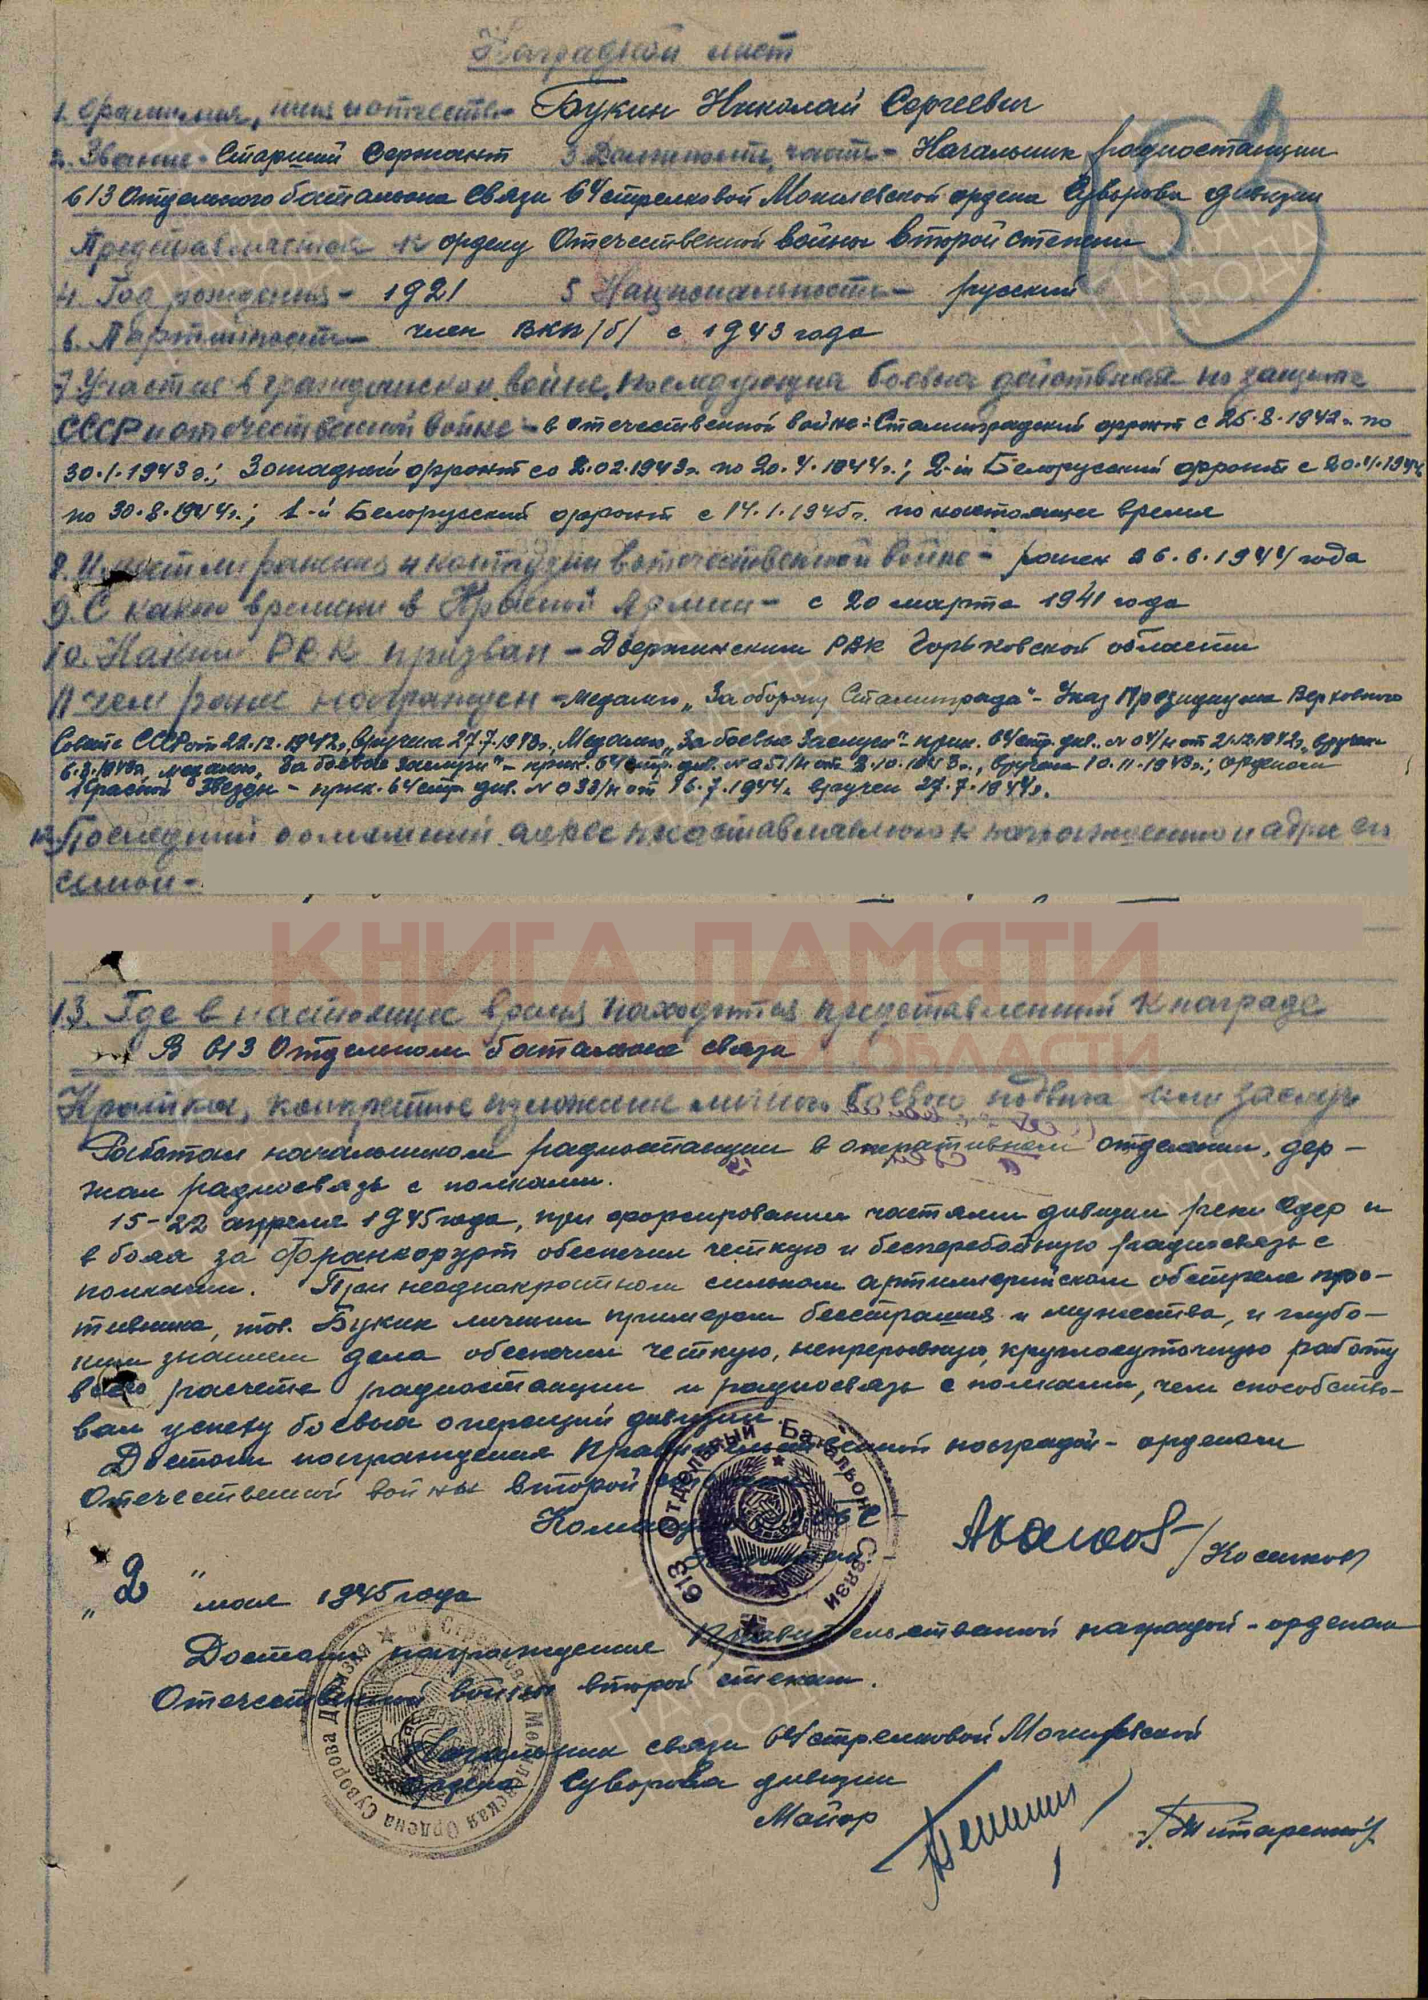 Наградной лист
1. Фамилия, имя и отчество - Букин Николай Сергеевич
2. Звание - Старший Сержант 3 Должность, часть - Начальник радиостанции
613 Отдельного батальона связи 64 стрелковой Могилевской ордена Суворова дивизии
Представляется к ордену Отечественной войны второй степени
4. Год рождения - 1921 5 Национальность - русский
6. Партийность - член ВКП/б/ с 1943 года
7 Участие в гражданской войне, последующих боевых действиях по защите
СССР и отечественной войне - в отечественной войне: Сталинградский фронт с 25.8.1942г. по
30.1.1943г.; Западный фронт со 2.02.1943г. по 20.4.1944г.; 2-й Белорусский фронт с 20.4.1944
по 30.8.1944г.; 1-й Белорусский фронт с 14.1.1945г. по настоящее время
8. Имеет ли ранения и контузии в отечественной войне - ранен 26.6.1944 года
9. С какого времени в Красной Армии - с 20 марта 1941 года
10. Каким РВК призван - Дзержинским РВК Горьковской области
11 Чем ранее награжден - медалью „За оборону Сталинграда" - Указ Президиума Верховного
Совета СССР от 22.12.1942г., вручена 27.7.1943г., Медалью „За боевые заслуги" - прик. 64 стр. див. №04/н от 21.12.1942г., вручен
6.3.1943г, медалью „За боевые заслуги" - прик. 64 стр. див. №051/н от 8.10.1943г., вручена 10.11.1943г.; орденом
Красной Звезды - прик. 64 стр. див. №033/н от 16.7.1944г. вручен 27.7.1944г.
12. Последний домашний адрес представляемого к награждению и адрес его
семьи -
КНИГА ПАМЯТИ
НИЖЕГОРОДСКОЙ ОБЛАСТИ
13. Где в настоящее время находится представленный к награде
В 613 Отдельном батальоне связи
Краткое, конкретное изложение личного боевого подвига или заслуг
Работая начальником радиостанции в оперативном отделении, дер-
жал радиосвязь с полками.
15-22 апреля 1945 года, при форсировании частями дивизии реки Одер и
в боях за Франкфурт обеспечил четкую и бесперебойную радиосвязь с
полками. При неоднократном сильном артиллерийском обстреле про-
тивника, тов. Букин личным примером бесстрашия и мужества, и глубо-
ким знанием дела обеспечил четкую, непрерывную, круглосуточную работу
всего расчета радиостанции и радиосвязь с полками, чем способство-
вал успеху боевых операций дивизии.
Достоин награждения Правительственной наградой - орденом
Отечественной войны второй степени
Командир 613 ОБС
613 Отдельный Батальон Связи
„2" мая 1945 года
Достоин награждения Правительственной наградой - орденом
Отечественной войны второй степени.
Начальник связи 64 стрелковой Могилевской
ордена Суворова дивизии
Майор /Титаренко/
64 Стрелковая Могилевская Ордена Суворова Дивизия
ПАМЯТЬ НАРОДА